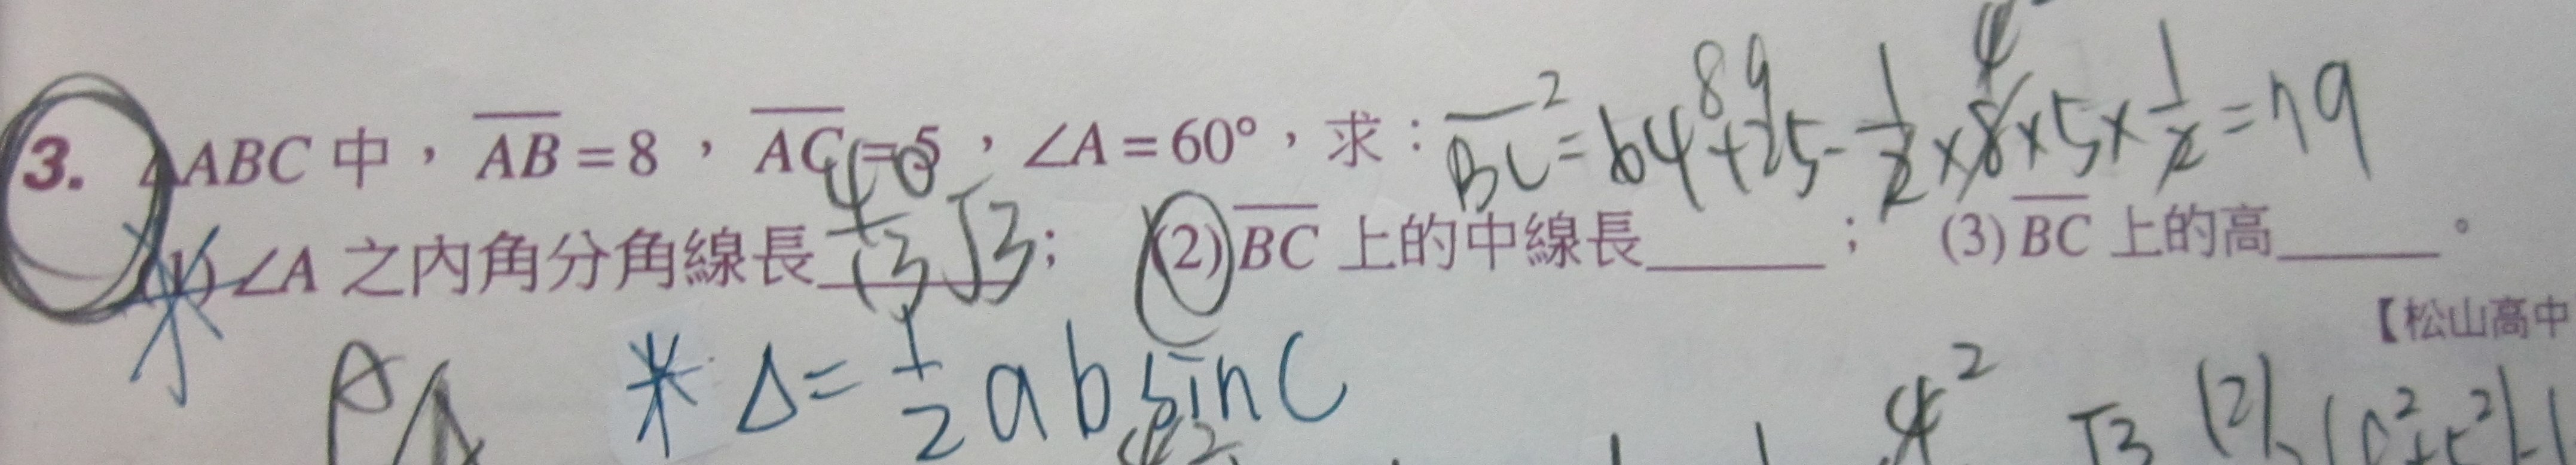 3. △ABC 中,AB=8,AC=5,∠A=60°,求: BC²=64+25-1/2×8×5×1/2=79
89 4
(1)∠A 之內角分角線長 40/13 √3; (2) BC 上的中線長____; (3) BC 上的高____。
【松山高中
* △=1/2 ab sin C
4² √3 (2)